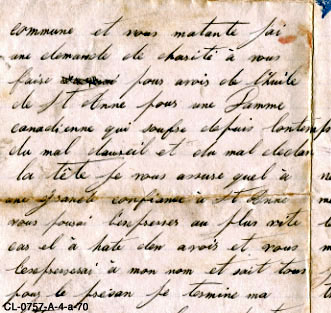 commune et vous matante jai
une demande de charité à vous
faise pour avois de l'huile
de St Anne pous une Damme
canadienne qui soufre depuis lontemp
du mal daureil et du mal declar
la tête je vous assuse quel à
une grande confiance à St Anne
vous pousai l'espresser au plus vite
cas el à hate den avois et vous
lespresserai à mon nom et sait tous
pous le présan je termine ma
CL-0757-A-4-a-70